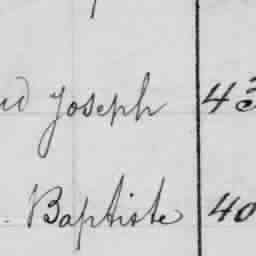 Joseph 43
Baptiste 40